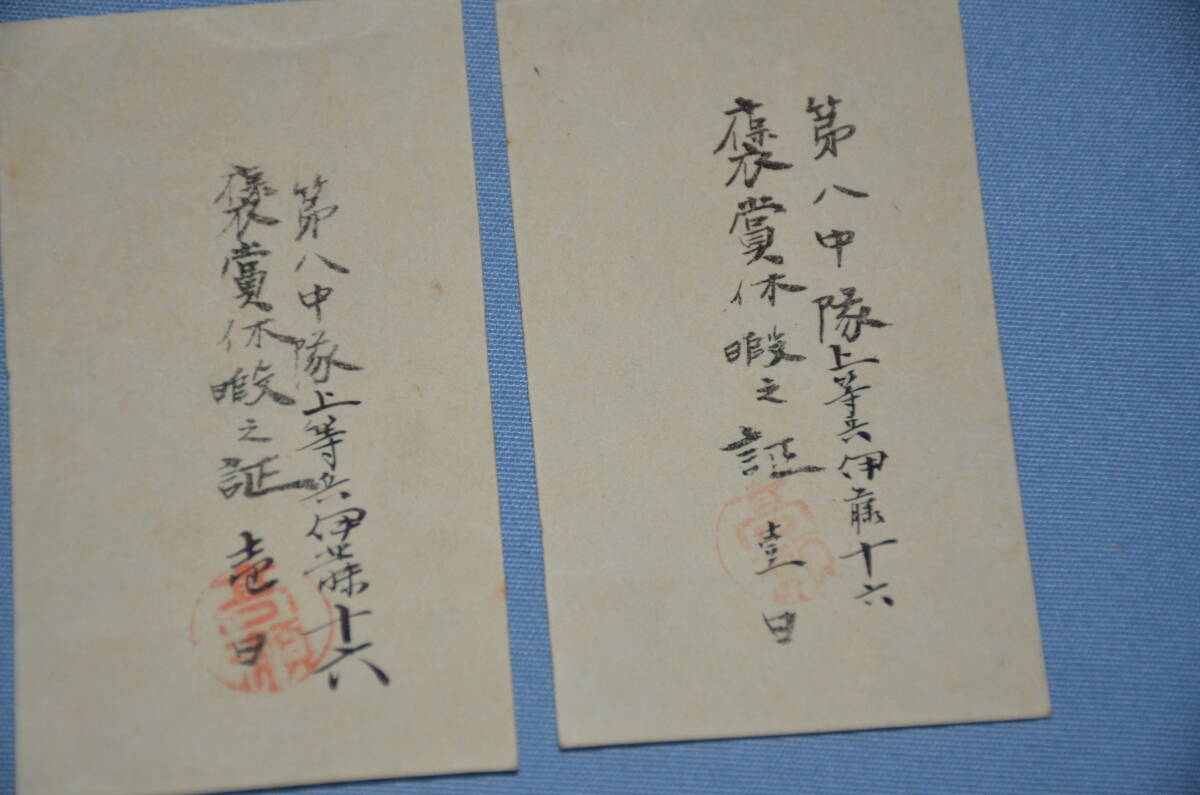 第八中隊上等兵伊藤十六
褒賞休暇之証 壹日
第八中隊上等兵伊藤十六
褒賞休暇之証 壱日